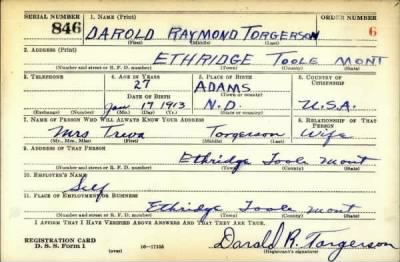 SERIAL NUMBER 1. NAME (Print) ORDER NUMBER
846 DAROLD RAYMOND TORGERSON 6
(First) (Middle) (Last)
2. ADDRESS (Print)
ETHRIDGE TOOLE MONT
(Number and street or R. F. D. number) (Town) (County) (State)
3. TELEPHONE 4. AGE IN YEARS 5. PLACE OF BIRTH 6. COUNTRY OF CITIZENSHIP
27 ADAMS
DATE OF BIRTH (Town or county)
Jan 17 1913 N.D. U.S.A.
(Exchange) (Number) (Mo.) (Day) (Yr.) (State or country)
7. NAME OF PERSON WHO WILL ALWAYS KNOW YOUR ADDRESS 8. RELATIONSHIP OF THAT PERSON
Mrs Treva Torgerson Wife
(Mr., Mrs., Miss) (First) (Middle) (Last)
9. ADDRESS OF THAT PERSON
Ethridge Toole Mont
(Number and street or R. F. D. number) (Town) (County) (State)
10. EMPLOYER'S NAME
Self
11. PLACE OF EMPLOYMENT OR BUSINESS
Ethridge Toole Mont
(Number and street or R. F. D. number) (Town) (County) (State)
I AFFIRM THAT I HAVE VERIFIED ABOVE ANSWERS AND THAT THEY ARE TRUE.
REGISTRATION CARD
D. S. S. Form 1 (over) 16-17105 Darold R. Torgerson
(Registrant's signature)